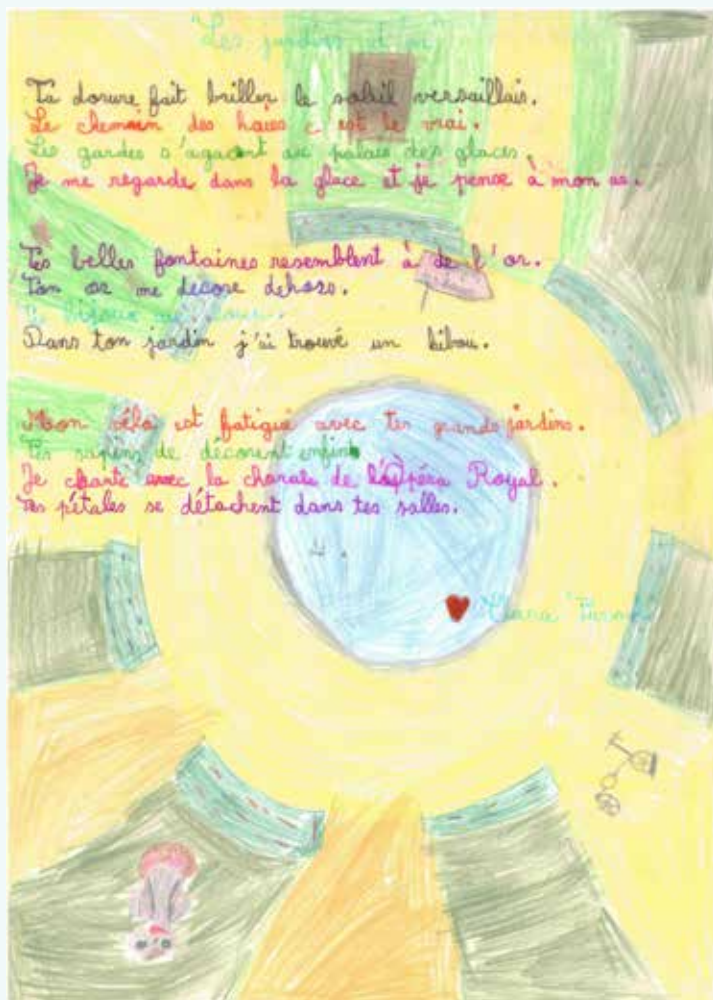 "Les jardins d'or"
Ta dorure fait briller le soleil versaillais.
Le chemin des haies c'est le vrai.
Les gardes s'agacent au palais des glaces.
Je me regarde dans la glace et je pense à mon as.
Tes belles fontaines resemblent à de l'or.
Ton or me décore dehors.
bijoux
Dans ton jardin j'ai trouvé un hibou.
Mon vélo est fatigué avec tes grands jardins.
Tes sapins te décorent enfin
Je chante avec la chorale de l'Opéra Royal.
Tes pétales se détachent dans tes salles.